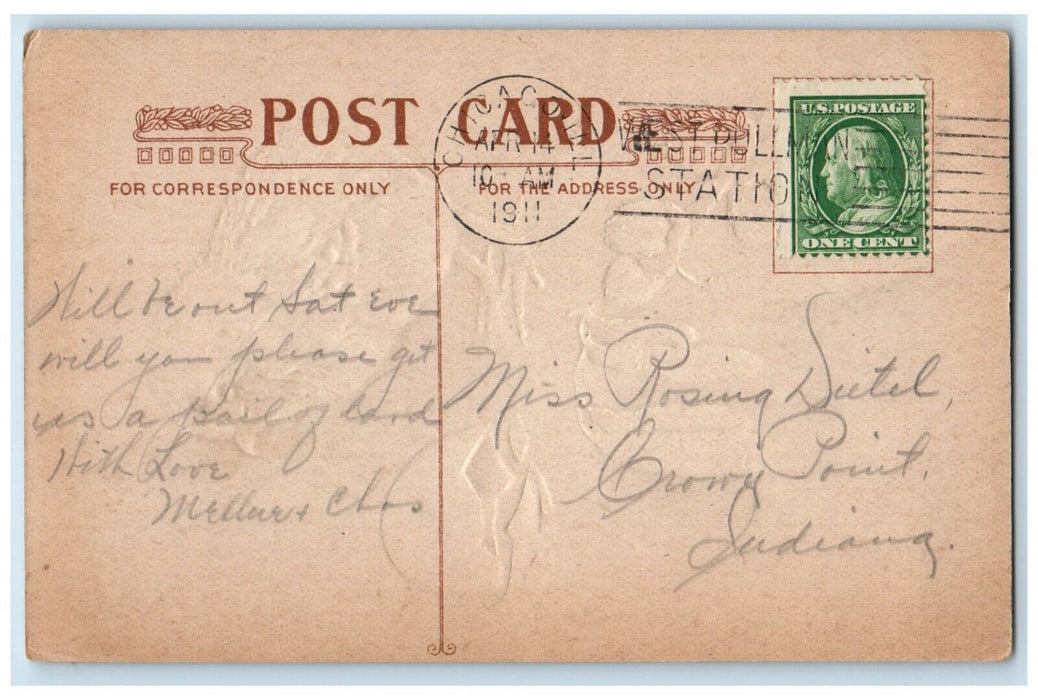 POST CARD
FOR CORRESPONDENCE ONLY
FOR THE ADDRESS ONLY
CHICAGO, ILL.
APR 14
10 AM
1911
WEST PULLMAN
STATION
U.S. POSTAGE
ONE CENT
Will be out Sat eve
will you please get
us a pail of lard
With Love
+ Chas
Miss Rosina Dietel,
Crown Point,
Indiana.